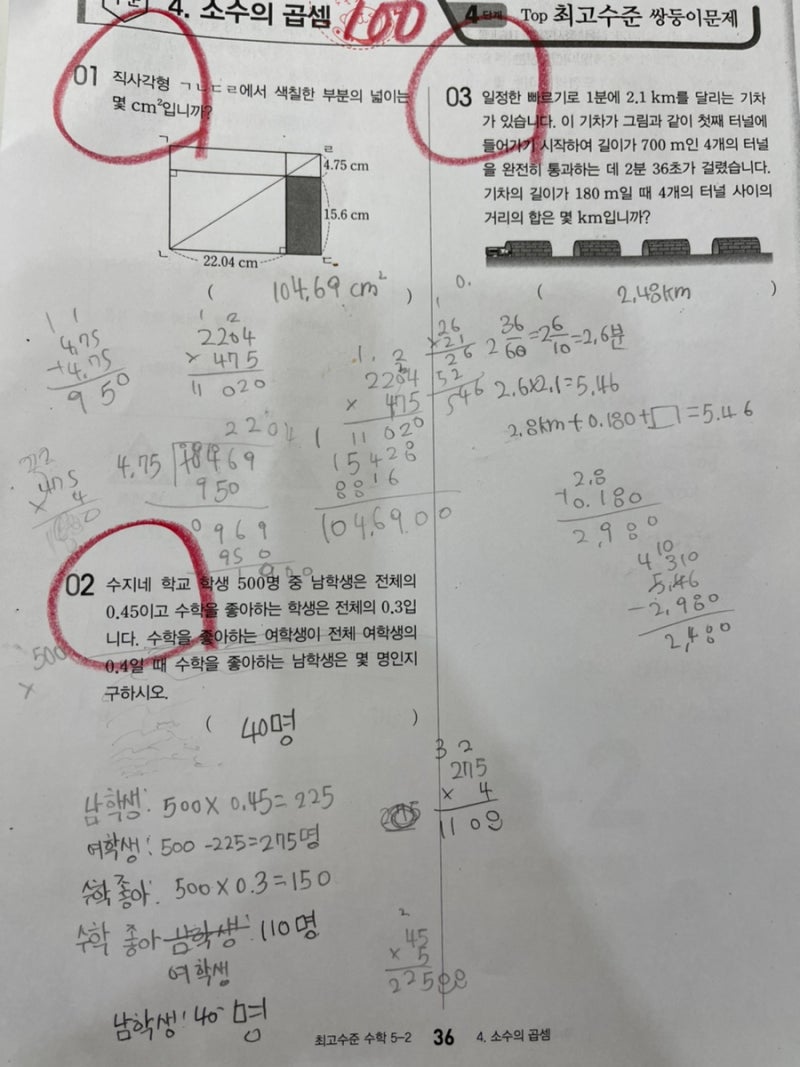 4. 소수의 곱셈 100
4 단계 Top 최고수준 쌍둥이문제
01 직사각형 ㄱㄴㄷㄹ에서 색칠한 부분의 넓이는
몇 cm²입니까?
ㄱ
ㄹ
4.75 cm
15.6 cm
ㄴ
22.04 cm
ㄷ
( 104.69 cm² )
1 1
4.75
+4.75
9 50
1 2
2204
× 475
11 020
1 2
2204
× 475
11 020
15428
8816
104,69.00
2204
4.75
950
0969
950
475
× 4
02 수지네 학교 학생 500명 중 남학생은 전체의
0.45이고 수학을 좋아하는 학생은 전체의 0.3입
니다. 수학을 좋아하는 여학생이 전체 여학생의
0.4일 때 수학을 좋아하는 남학생은 몇 명인지
구하시오.
500
×
( 40명 )
남학생: 500×0.45=225
여학생: 500-225=275명
수학좋아: 500×0.3=150
수학 좋아 남학생: 110명
여학생
남학생: 40명
3 2
275
× 4
1100
2
45
× 5
22500
03 일정한 빠르기로 1분에 2.1 km를 달리는 기차
가 있습니다. 이 기차가 그림과 같이 첫째 터널에
들어가기 시작하여 길이가 700 m인 4개의 터널
을 완전히 통과하는 데 2분 36초가 걸렸습니다.
기차의 길이가 180 m일 때 4개의 터널 사이의
거리의 합은 몇 km입니까?
0.
( 2.48km )
1
26
×21
26
52
546
2 36/60=2 6/10=2.6분
2.6×2.1=5.46
2.8km+0.180+□=5.46
2.8
+0.180
2.980
4 10
310
5.46
-2.980
2.480
최고수준 수학 5-2 36 4. 소수의 곱셈